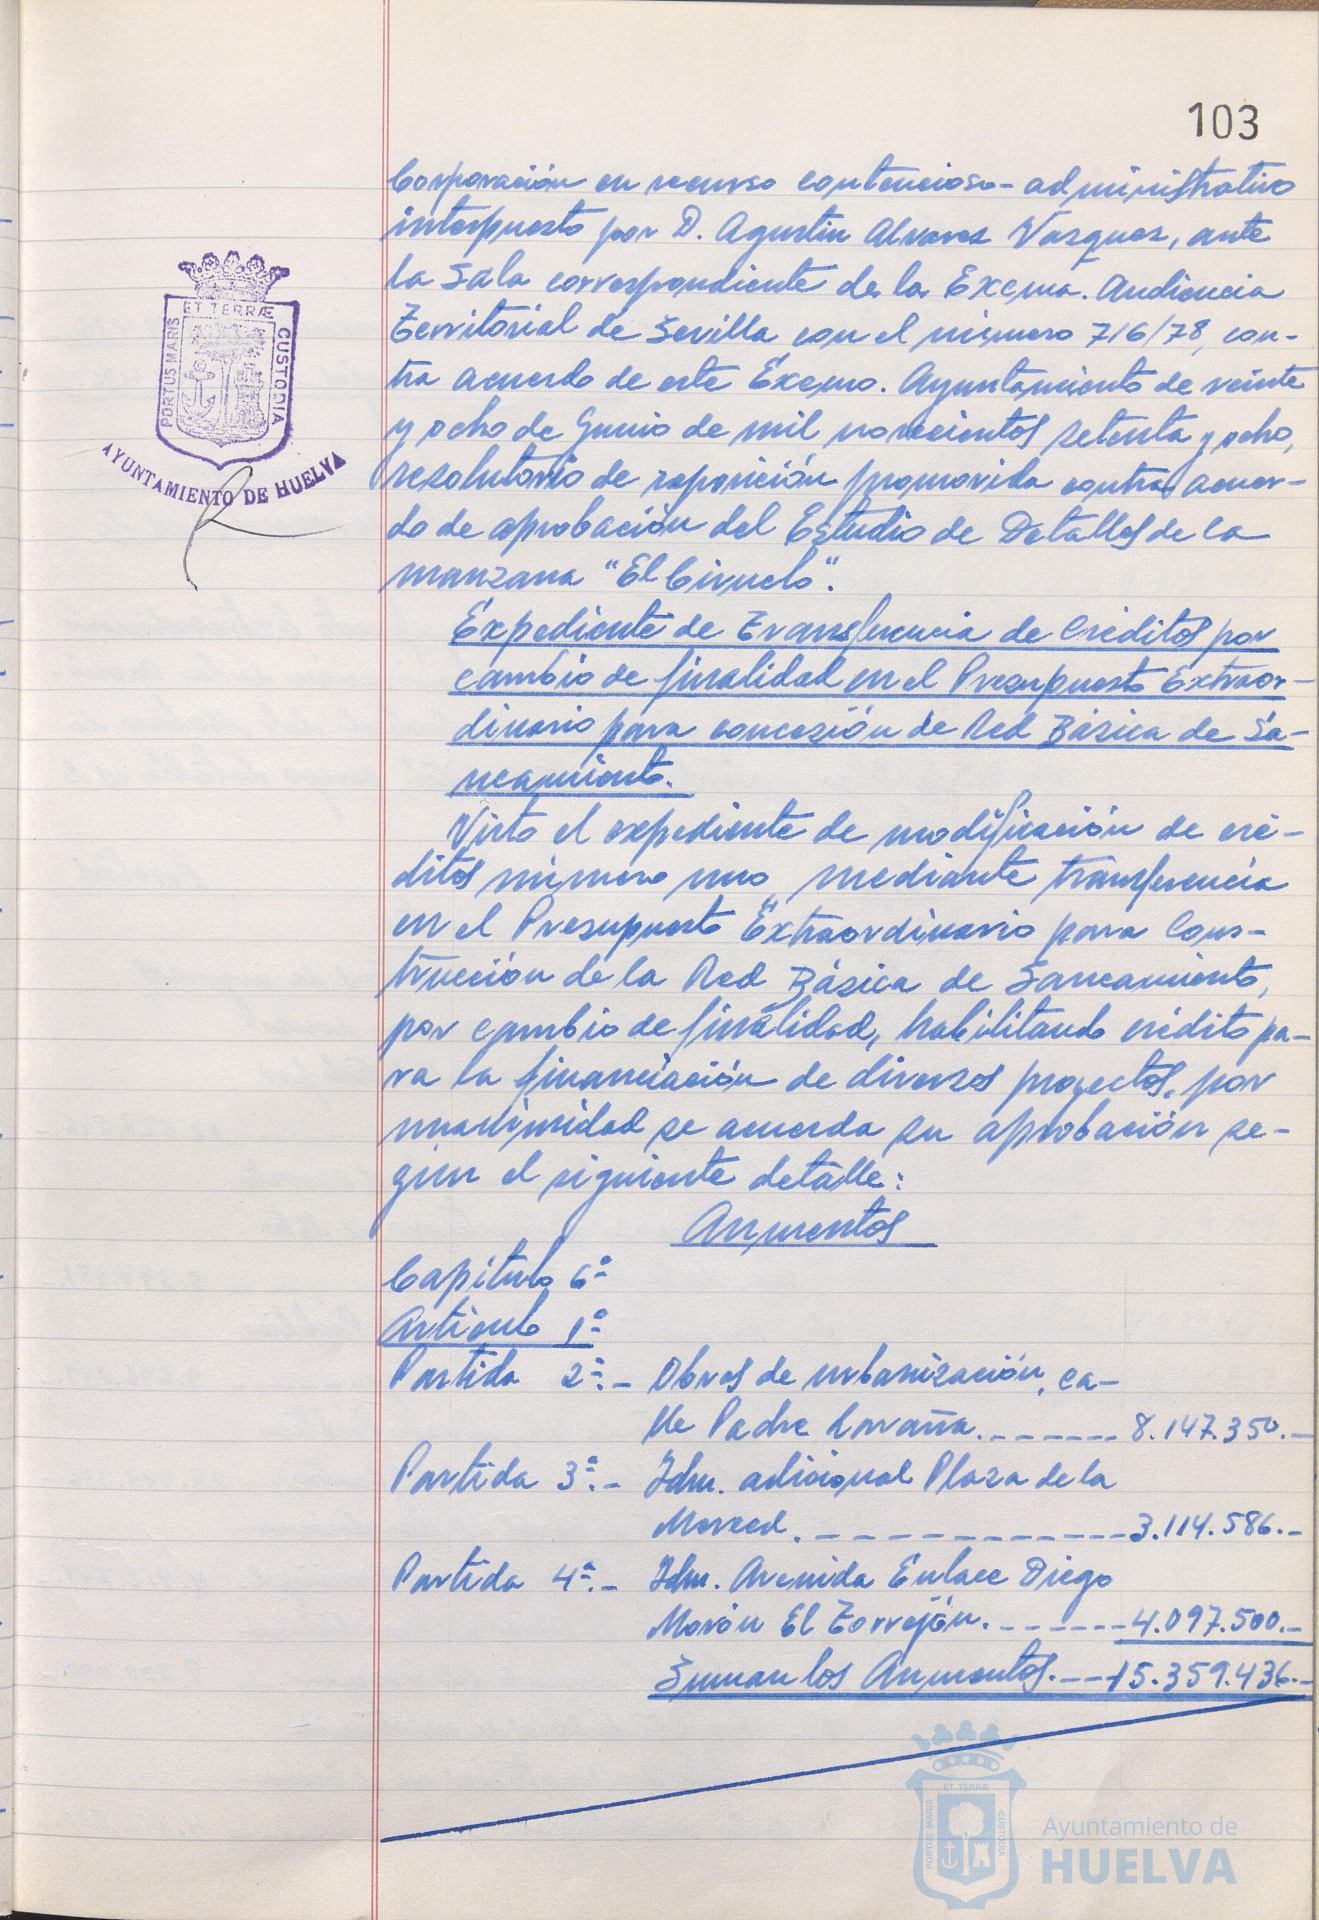 103
Corporación en recurso contencioso-administrativo
interpuesto por D. Agustín Alvarez Vazquez, ante
la Sala correspondiente de la Excma. Audiencia
Territorial de Sevilla con el número 716/78, con-
tra acuerdo de este Excmo. Ayuntamiento de veinte
y ocho de Junio de mil novecientos setenta y ocho,
resolutorio de reposición promovida contra acuer-
do de aprobación del Estudio de Detalles de la
manzana "El Ciruelo".
Expediente de Transferencia de Créditos por
cambio de finalidad en el Presupuesto Extraor-
dinario para concesión de Red Básica de Sa-
neamiento.
Visto el expediente de modificación de cré-
ditos número uno, mediante transferencia
en el Presupuesto Extraordinario para Cons-
trucción de la Red Básica de Saneamiento,
por cambio de finalidad, habilitando crédito pa-
ra la financiación de diversos proyectos, por
unanimidad se acuerda su aprobación se-
gún el siguiente detalle:
Aumentos
Capítulo 6º
Artículo 1º
Partida 2ª.- Obras de urbanización, ca-
lle Padre Marañа.------- 8.147.350.-
Partida 3ª.- Idm. adicional Plaza de la
Merced.------------3.114.586.-
Partida 4ª.- Idm. Avenida Enlace Diego
Morón El Torrejón.------4.097.500.-
Suman los Aumentos.---15.359.436.-
PORTUS MARIS ET TERRÆ CUSTODIA
AYUNTAMIENTO DE HUELVA
PORTUS MARIS ET TERRÆ CUSTODIA
Ayuntamiento de
HUELVA